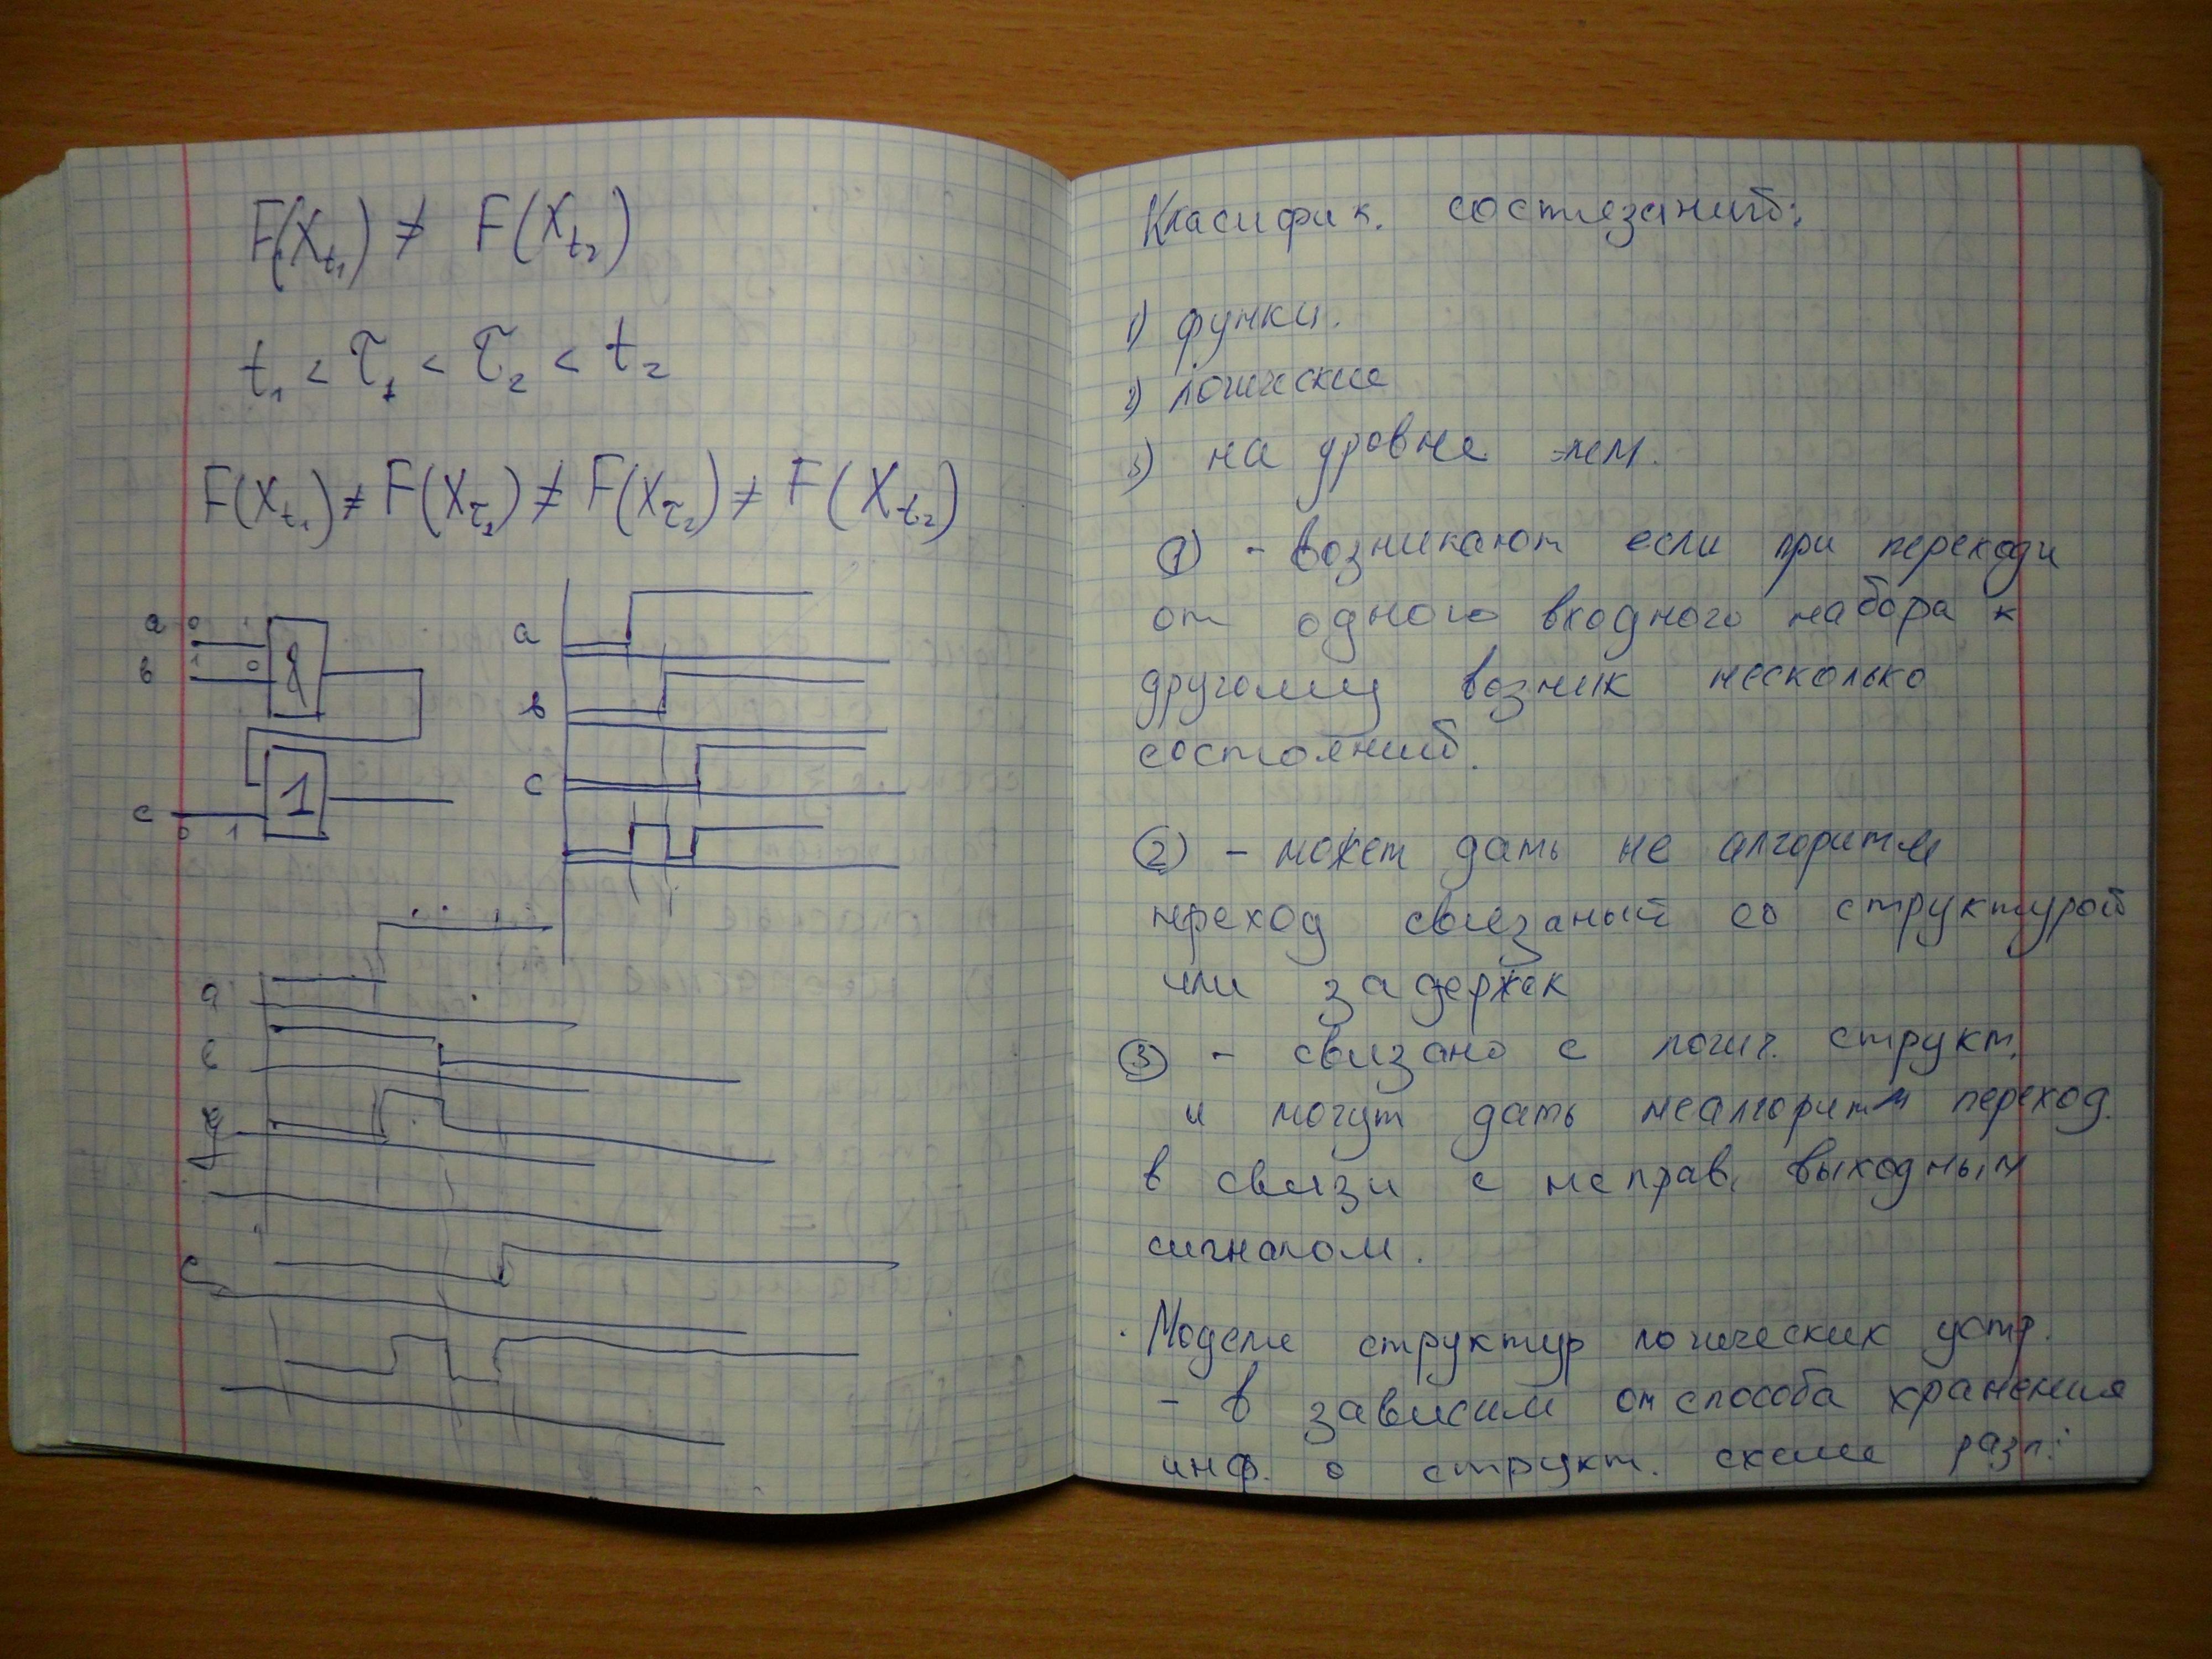 F(X_t₁) ≠ F(X_t₂)
t₁ < τ₁ < τ₂ < t₂
F(X_t₁) ≠ F(X_τ₁) ≠ F(X_τ₂) ≠ F(X_t₂)
a 0 1
в 1 0
&
1
c 0 1
a
в
c
a
в
c
Класифик. состязаний:
1) функц.
2) логические
3) на уровне элем.
① - возникают если при переходи
от одного входного набора к
другому возник несколько
состояний.
② - может дать не алгоритм
преход связаный со структурой
или задержек
③ - связано с логич. структ.
и могут дать неалгоритм переход.
в связи с неправ. выходным
сигналом.
Модели структур логических устр.
- в зависим от способа хранения
инф. о структ. схеме разл: